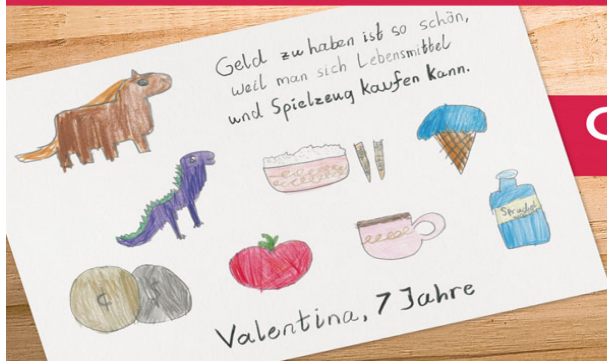 Geld zu haben ist so schön,
weil man sich Lebensmittel
und Spielzeug kaufen kann.
Sprudel
Valentina, 7 Jahre